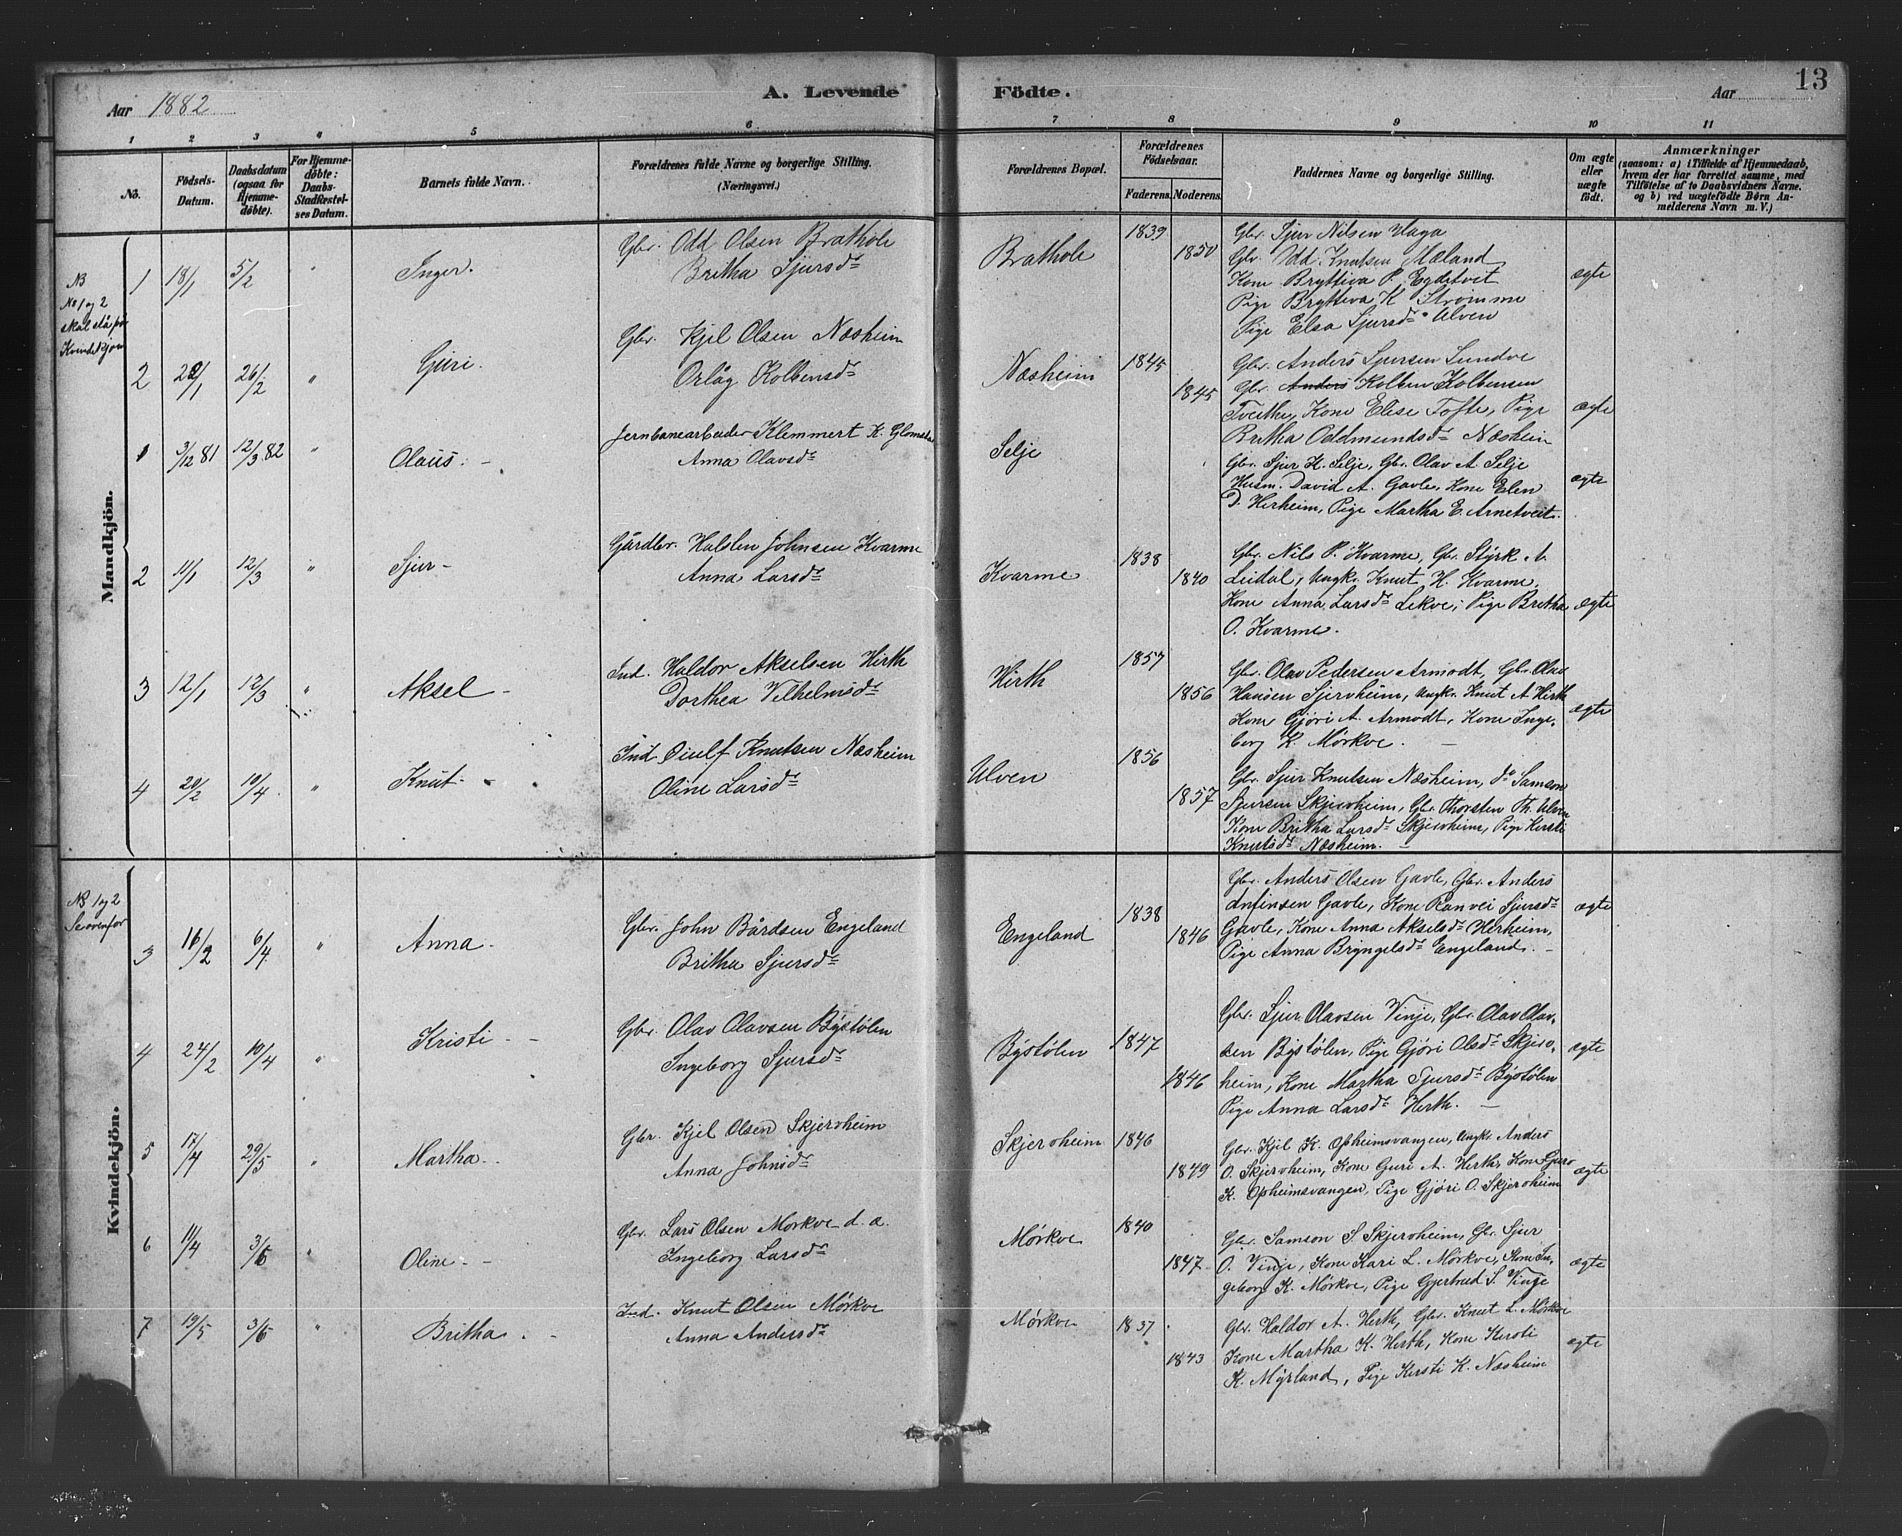 Aar 1882
A. Levende Födte.
Aar
13
1 2 3 4 5 6 7 8 9 10 11
No.
Fødsels-Datum.
Daabsdatum (ogsaa for Hjemme-døbte).
For Hjemme-døbte: Daabs-Stadfæstel-ses Datum.
Barnets fulde Navn.
Forældrenes fulde Navne og borgerlige Stilling. (Næringsvei.)
Forældrenes Bopæl.
Forældrenes Fødselsaar.
Faderens. Moderens.
Faddernes Navne og borgerlige Stilling.
Om ægte eller uægte født.
Anmærkninger
(saasom: a) i Tilfælde af Hjemmedaab, hvem der har forrettet samme, med Tilføielse af to Daabsvidners Navne. og b) ved uægtefødte Børn An-melderens Navn m. V.)
Mandkjön.
NB
No 1 og 2
skal stå på
Kvindekjøn
1 18/1 5/2 " Inger.
Gbr. Odd Olsen Brathole
Britha Sjursdr
Brathole 1839 1850
Gbr. Sjur Nilsen Vaga
Gbr. Odd Knutsen Mæland
Kone Bryttiva P. Egdetveit
Pige Bryttiva K. Strømme
Pige Elsa Sjursdr Ulven
ægte
2 28/1 26/2 " Guri.
Gbr. Kjel Olsen Næsheim
Orlåg Kolbensdr
Næsheim 1845 1845
Gbr. Anders Sjursen Lundve
Gbr. Anders Kolben Kolbensen
Tveithe, Kone Elise Tofte, Pige
Britha Oddmundsdr Næsheim
ægte
1 3/12 81 12/3 82 " Olaus.
Jernbanearbeider Klemmert K.
Anna Olavsdr
Selje
Gbr. Sjur H. Selje, Gbr. Olav A. Selje
Husm. David A. Gavle, Kone Elen
D. Herheim, Pige Martha E. Arnetveit.
ægte
2 11/1 12/3 " Sjur
Gårdbr. Halsten Johnsen Kvarme
Anna Larsdr
Kvarme 1838 1840
Gbr. Nils P. Kvarme, Gbr. Styrk A.
Leidal, Ungk. Knut H. Kvarme,
Kone Anna Larsdr Lekve, Pige Britha
O. Kvarme.
ægte
3 12/1 12/3 " Aksel
Ind. Haldor Akselsen Hirth
Dorthea Vilhelmsdr
Hirth 1857 1856
Gbr. Olav Pedersen Armodt, Gbr. Olav
Hansen Sjerveim, Ungk. Knut A. Hirth
Kone Gjøri A. Armodt, Kone Inge-
borg K. Mørkve.
ægte
4 20/2 10/4 " Knut
Ind Øiulf Knutsen Næsheim
Oline Larsdr
Ulven 1856 1857
Gbr. Sjur Knutsen Næsheim, do Samson
Sjursen Skjerveim, Gbr. Thorsten Th. Ulven
Kone Britha Larsdr Skjervheim, Pige Kersti
Knutsdr Næsheim.
Kvindekjön.
NB 1 og 2
Se ovenfor
3 16/2 6/4 " Anna
Gbr. John Bårdsen Engeland
Britha Sjursdr
Engeland 1838 1846
Gbr. Anders Olsen Gavle, Gbr. Anders
Anfinsen Gavle, Kone Ranvei Sjursdr
Gavle, Kone Anna Akselsdr Herheim,
Pige Anna Bryngelsdr Engeland.
ægte
4 24/2 10/4 " Kristi
Gbr. Olav Olavsen Bystølen
Ingeborg Sjursdr
Bystølen 1847 1846
Gbr. Sjur Olavsen Vinje, Gbr. Olav Olav-
sen Bystølen, Pige Gjøri Olsdr Skjerv-
heim, Kone Martha Sjursdr Bystølen
Pige Anna Larsdr Herth.
ægte
5 17/4 29/5 " Martha
Gbr. Kjel Olsen Skjervheim
Anna Johnsdr
Skjervheim 1846 1849
Gbr. Kjel K. Opheimsvangen, Ungk. Anders
O. Skjervheim, Kone Guri A. Herth, Kone Guro
K. Opheimsvangen, Pige Gjøri O. Skjervheim
ægte
6 11/4 3/6 " Oline
Gbr. Lars Olsen Mørkve d. a.
Ingeborg Larsdr
Mørkve 1840 1847
Gbr. Samson S Skjervheim, Gbr. Sjur
O. Vinje, Kone Kari L. Mørkve, Kone In-
geborg K. Mørkve, Pige Gjertrud S. Vinje
ægte
7 19/5 3/6 " Britha
Ind. Knut Olsen Mørkve
Anna Andersdr
Mørkve 1837 1843
Gbr. Haldor A. Herth, Gbr. Knut L. Mørkve
Kone Martha K. Herth, Kone Kersti
K. Myrland, Pige Kersti K. Næsheim
ægte